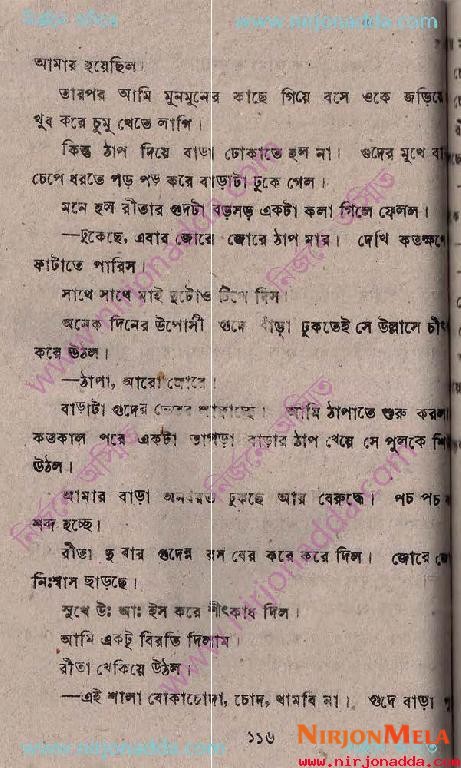 www.nirjonadda.com
আমার হয়েছিল।
তারপর আমি মুনমুনের কাছে গিয়ে বসে ওকে
খুব করে চুমু খেতে লাগি।
কিন্তু ঠাপ দিয়ে বাড়া ঢোকাতে হল না। গুদের মুখে
চেপে ধরতে পড় পড় করে বাড়াটা ঢুকে গেল।
মনে হল রীতার গুদটা বড়সড় একটা কলা গিলে ফেলল।
—ঢুকেছে, এবার জোরে জোরে ঠাপ মার। দেখি
কাটাতে পারিস।
সাথে সাথে মাই দুটোও টিপে দিস।
অনেক দিনের উপোসী গুদে বাঁড়া ঢুকতেই সে উল্লাসে
করে উঠল।
—ঠাপা, আরো জোরে।
বাড়াটা গুদের আমি ঠাপাতে শুরু
কতকাল পরে একটা বাড়ার ঠাপ খেয়ে সে পুলকে
উঠল।
আমার বাড়া অনবরত ঢুকছে আর বেরুচ্ছে। পচ পচ
শব্দ হচ্ছে।
রীতা দু বার গুদের রস বের করে করে দিল। জোরে
নিঃশ্বাস ছাড়ছে।
সুখে উঃ আঃ ইস করে শীৎকার দিল।
আমি একটু বিরতি দিলাম।
রীতা খেকিয়ে উঠল।
—এই শালা বোকাচোদা, চোদ, থামবি না। গুদে বাড়া
১১৬
NIRJONMELA
www.nirjonadda.com
www.nirjonadda.com
নির্জনে অস্মিত
www.nirjonadda.com
নির্জনে অস্মিত
www.nirjonadda.com
নির্জনে অস্মিত